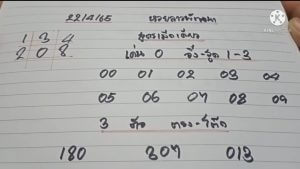 22/4/65 หวยลาวพัฒนา
1 3 4 สูตรเม็ดเดียว
2 0 8 เด่น 0 วิ่ง-รูด 1-3
00 01 02 03 04
05 06 07 08 09
3 ตัว ตรง-โต๊ด
180 307 013